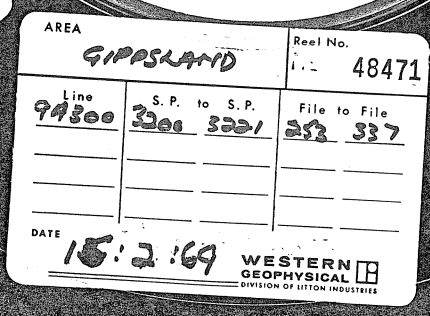 AREA
GIPPSLAND
Reel No.
48471
Line S. P. to S. P. File to File
3200 3221 253 337
DATE 15:2:69
WESTERN
GEOPHYSICAL
DIVISION OF LITTON INDUSTRIES